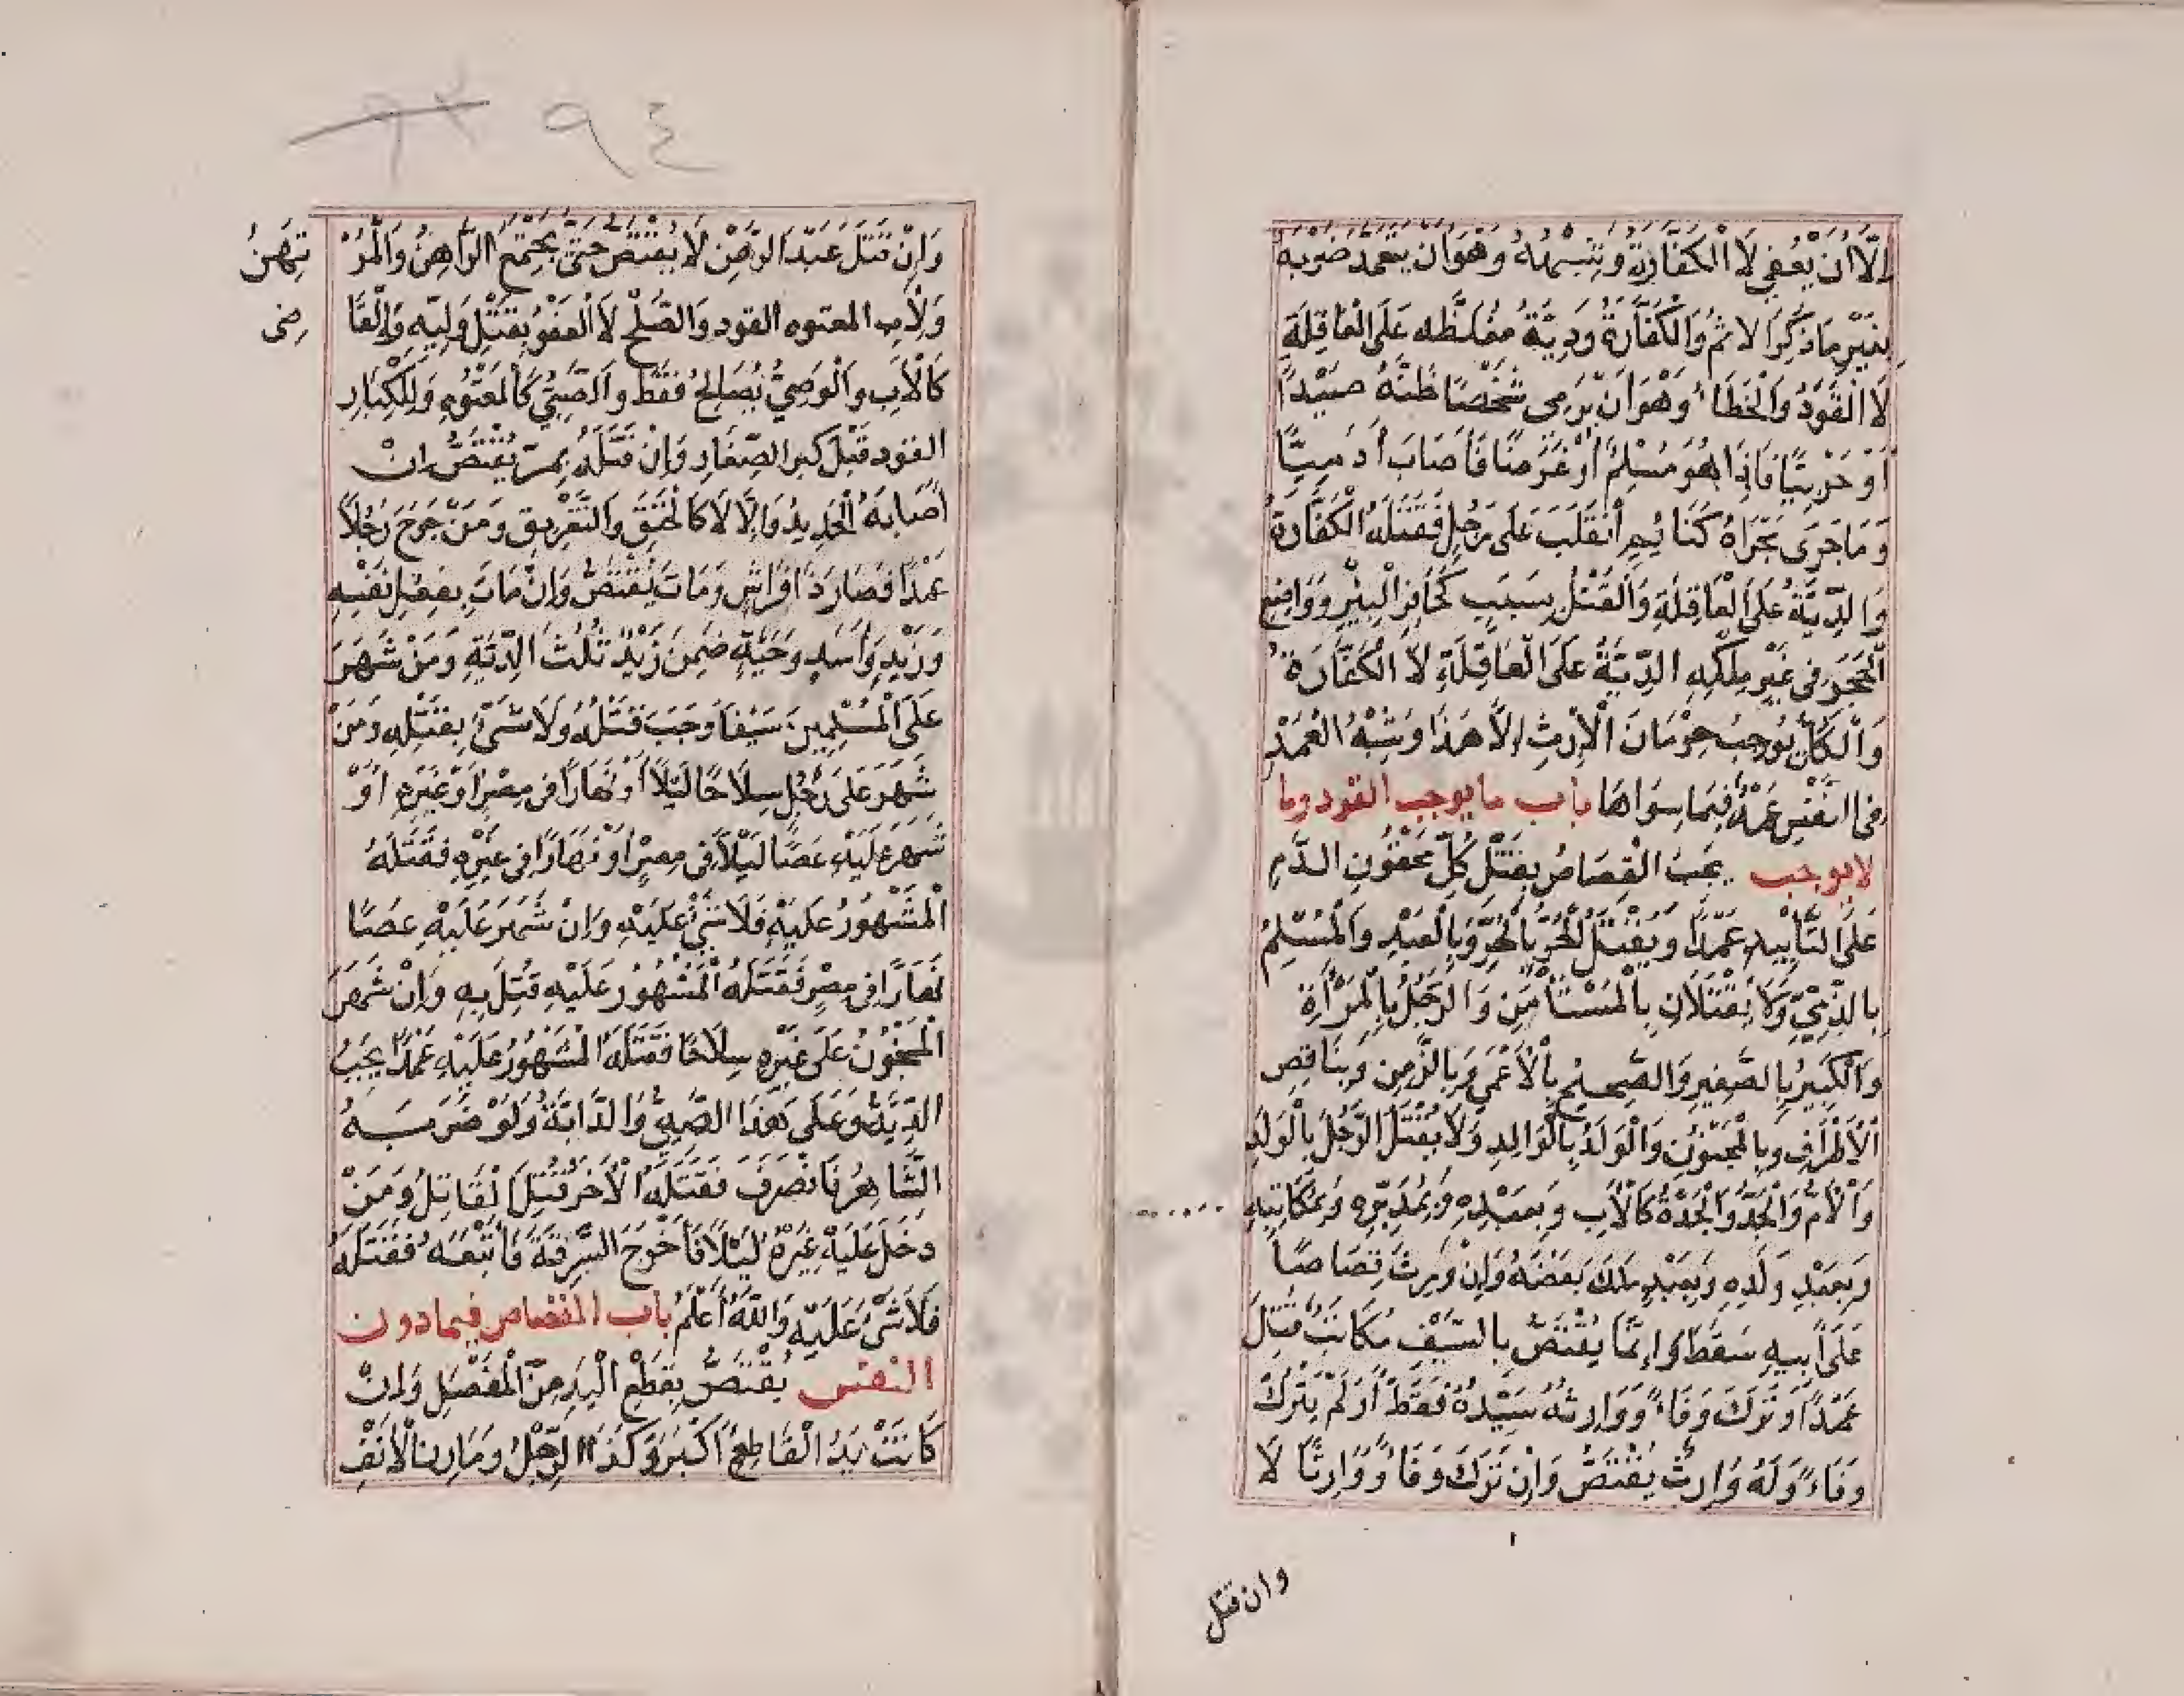 اِلَّا اَنْ يُعْفٰى لَا الْكَفَّارَةُ وَشِبْهُهُ وَهُوَ اَنْ يَتَعَمَّدَ ضَرْبَهُ
بِغَيْرِ مَا ذُكِرَ الاِثْمُ وَالْكَفَّارَةُ وَدِيَةٌ مُغَلَّظَه عَلَى الْعَاقِلَةِ
لَا الْقَوَدُ وَالْخَطَاُ وَهْوَ اَنْ يَرْمِى شَخْصًا ظَنَّهُ صَيْدًا
اَوْ حَرْبِيًّا فَاِذَا هُوَ مُسْلِمٌ اَوْ غَرَضًا فَاَصَابَ اٰدَمِيًّا
وَمَا جَرَى مَجْرَاهُ كَنَائِمٍ اَنْقَلَبَ عَلَى رَجُلٍ فَقَتَلَهُ الْكَفَّارَةُ
وَالدِّيَةُ عَلَى الْعَاقِلَةِ وَالْقَتْلُ بِسَبَبٍ كَحَافِرِ الْبِيْرِ وَوَاضِعِ
الْحَجَرِ فِى غَيْرِ مِلْكِهِ الدِّيَةُ عَلَى الْعَاقِلَةِ لَا الْكَفَّارَةُ
وَالْكُلُّ يُوجِبُ حِرْمَانَ الْاِرْثِ اِلَّا هَذَا وَشِبْهُ الْعَمْدِ
فِى النَّفْسِ عَمْدٌ فِيمَا سِوَاهَا باب ما يوجب القود وما
لا يوجب يَجِبُ الْقِصَاصُ بِقَتْلِ كُلِّ مَحْقُونِ الدَّمِ
عَلَى التَّاْبِيدِ عَمْدًا وَيُقْتَلُ الْحُرُّ بِالْحُرِّ وَبِالْعَبْدِ وَالْمُسْلِمُ
بِالذِّمِّيِّ وَلَا يُقْتَلَانِ بِالْمُسْتَأْمَنِ وَالرَّجُلُ بِالْمَرْأَةِ
وَالْكَبِيرُ بِالصَّغِيرِ وَالصَّحِيحُ بِالْاَعْمَى وَبِالزَّمِنِ وَبِنَاقِصِ
الْاَطْرَافِ وَبِالْمَجْنُونِ وَالْوَلَدُ بِالْوَالِدِ وَلَا يُقْتَلُ الرَّجُلُ بِالْوَلَدِ
وَالْاُمُّ وَالْجَدُّ وَالْجَدَّةُ كَالْاَبِ وَبِعَبْدِهِ وَبِمُدَبَّرِهِ وَبِمُكَاتَبِهِ
وَبِعَبْدِ وَلَدِهِ وَبِعَبْدٍ مَلَكَ بَعْضَهُ وَاِنْ وَرِثَ قِصَاصًا
عَلَى اَبِيهِ سَقَطَ وَاِنَّمَا يُقْتَصُّ بِالسَّيْفِ مُكَاتَبٌ قُتِلَ
عَمْدًا وَتَرَكَ وَفَاءً وَوَارِثُهُ سَيِّدُهُ فَقَطْ اَوْ لَمْ يَتْرُكْ
وَفَاءً وَلَهُ وَارِثٌ يُقْتَصُّ وَاِنْ تَرَكَ وَفَاءً وَوَارِثًا لَا
وان قتل
٩٤
وَاِنْ قُتِلَ عَبْدُ الرَّهْنِ لَا يُقْتَصُّ حَتَّى يَجْتَمِعَ الرَّاهِنُ وَالْمُرْتَهِنُ
وَلِاَبِ المعتوه القود وَالصُّلْحُ لَا الْعَفْوُ بِقَتْلِ وَلِيِّه وَالْقَاضِى
كَالْاَبِ وَالْوَصِيُّ يُصَالِحُ فَقَطْ وَالصَّبِيُّ كَالْمَعْتُوهِ وَلِلْكِبَارِ
القود قَبْلَ كبر الصِّغَارِ وَاِنْ قَتَلَهُ بِمَرٍّ يُقْتَصُّ اِنْ
اَصَابَهُ الْحَدِيدُ وَاِلَّا لَا كَالْخَنِقِ وَالتَّغْرِيقِ وَمَنْ جَرَحَ رَجُلًا
عَمْدًا فَصَارَ ذَا فِرَاشٍ وَمَاتَ يُقْتَصُّ وَاِنْ مَاتَ بِفِعْلِ نَفْسِهِ
وَزَيْدٍ وَاَسَدٍ وَحَيَّةٍ ضَمِنَ زَيْدٌ ثُلُثَ الدِّيَةِ وَمَنْ شَهَرَ
عَلَى الْمُسْلِمِينَ سَيْفًا وَجَبَ قَتْلُهُ وَلَا شَىْءَ بِقَتْلِهِ وَمَنْ
شَهَرَ عَلَى رَجُلٍ سِلَاحًا لَيْلًا اَوْ نَهَارًا فِى مِصْرٍ اَوْ غَيْرِهِ اَوْ
شَهَرَ عَلَيْهِ عَصًا لَيْلًا فِى مِصْرٍ اَوْ نَهَارًا فِى غَيْرِهِ فَقَتَلَهُ
الْمَشْهُورُ عَلَيْهِ فَلَا شَيْءَ عَلَيْهِ وَاِنْ شَهَرَ عَلَيْهِ عَصًا
نَهَارًا فِى مِصْرٍ فَقَتَلَهُ الْمَشْهُورُ عَلَيْهِ قُتِلَ بِهِ وَاِنْ شَهَرَ
الْمَجْنُونُ عَلَى غَيْرِهِ سِلَاحًا فَقَتَلَهُ الْمَشْهُورُ عَلَيْهِ عَمْدًا يَجِبُ
الدِّيَةُ وَعَلَى هَذَا الصَّبِيُّ وَالدَّابَّةُ وَلَوْ ضَرَبَهُ
الشَّاهِرُ فَانْصَرَفَ فَقَتَلَهُ الْاٰخَرُ قُتِلَ الْقَاتِلُ وَمَنْ
دَخَلَ عَلَيْهِ غَيْرُهُ لَيْلًا فَاَخْرَجَ السَّرِقَةَ فَاتَّبَعَهُ فَقَتَلَهُ
فَلَا شَىْءَ عَلَيْهِ وَاللّٰهُ اَعْلَمُ باب القصاص فيما دون
النفس يُقْتَصُّ بِقَطْعِ الْيَدِ مِنَ الْمَفْصَلِ وَاِنْ
كَانَتْ يَدُ الْقَاطِعِ اَكْبَرَ وَكَذَا الرِّجْلُ وَمَارِنُ الْاَنْفِ